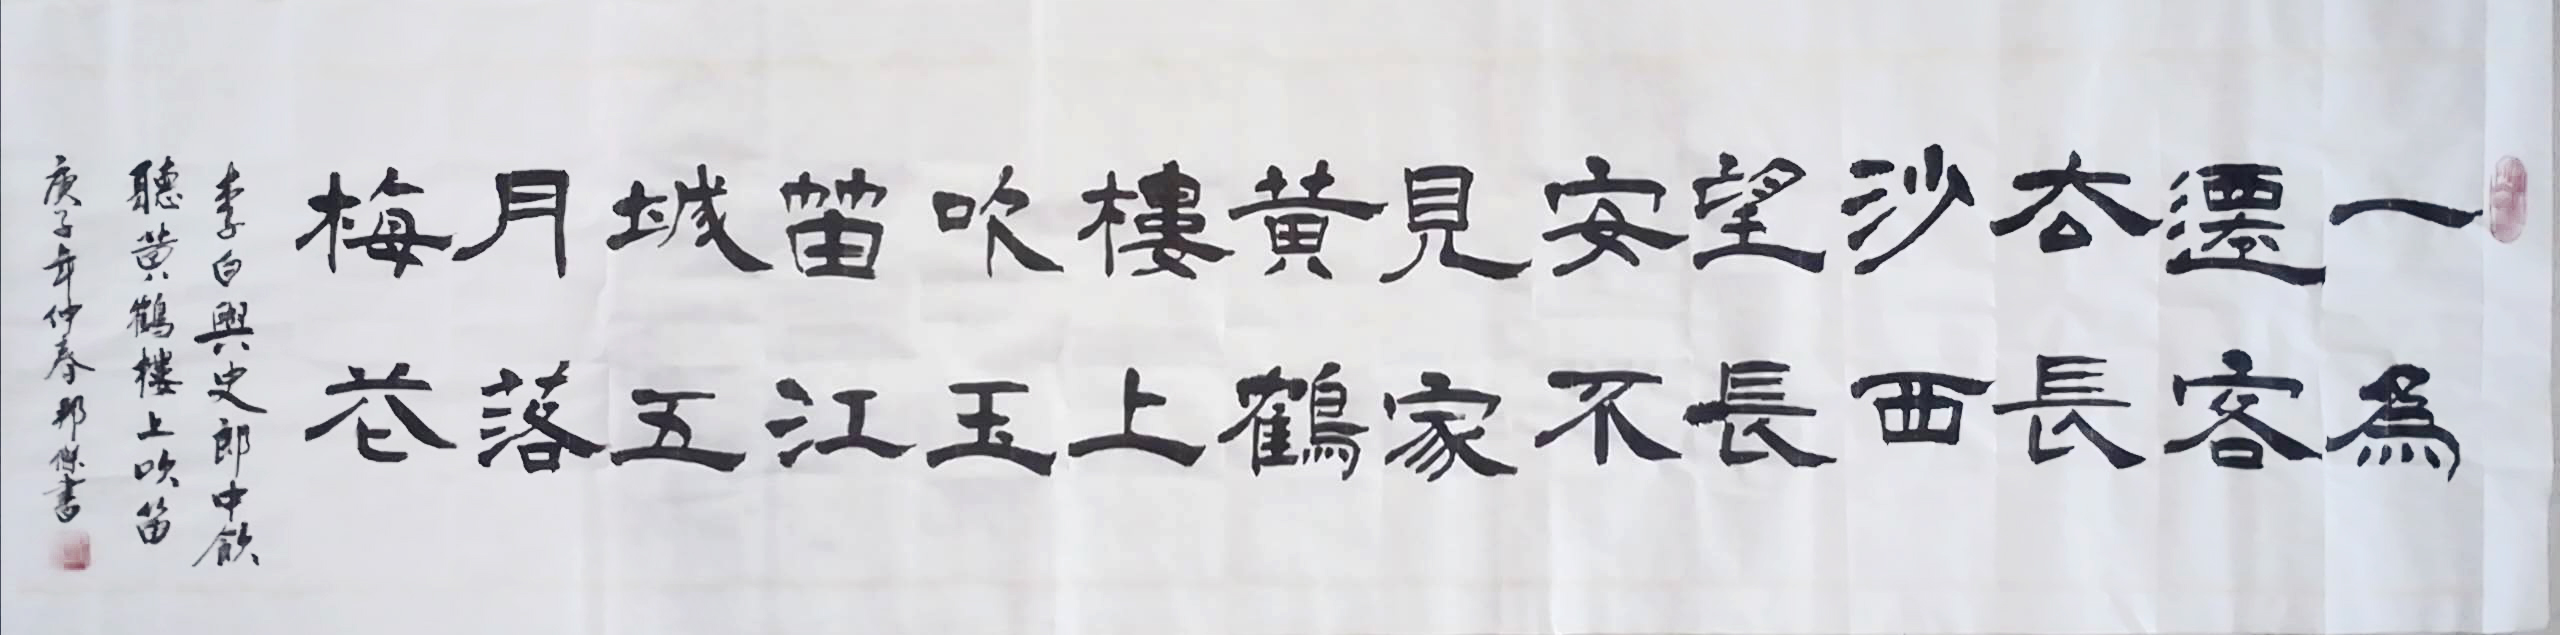 一為
遷客
去長
沙西
望長
安不
見家
黃鶴
樓上
吹玉
笛江
城五
月落
梅花
李白與史郎中飲
聽黃鶴樓上吹笛
庚子年仲春邦傑書